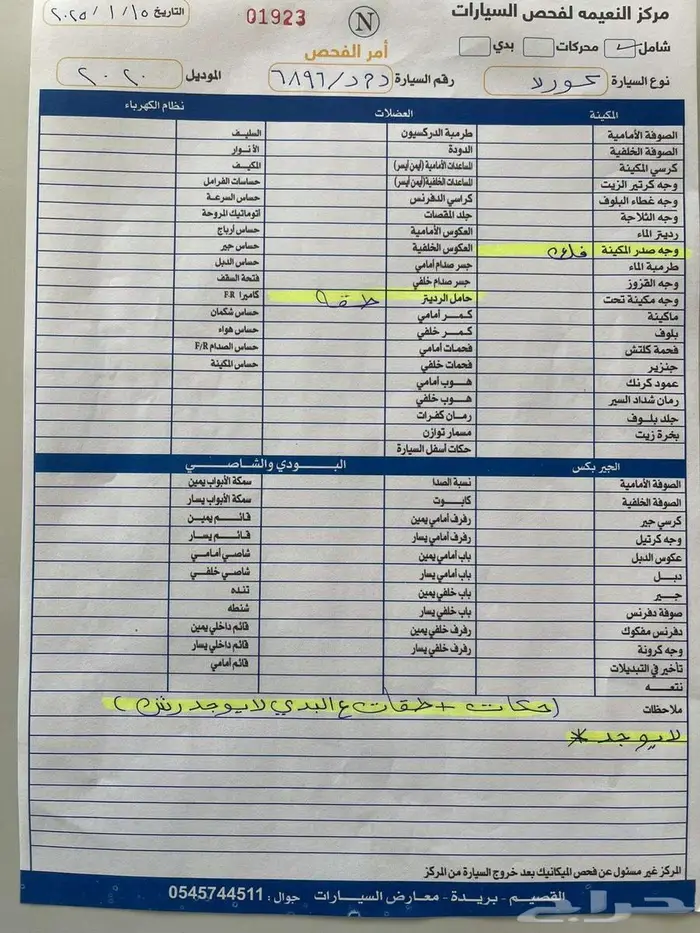 مركز النعيمه لفحص السيارات
N
01923
التاريخ ٢٠٢٥/١/١٥
شامل محركات بدي
أمر الفحص
نوع السيارة كورلا رقم السيارة ٦٨٩٦/ الموديل ٢٠٢٠
المكينة العضلات نظام الكهرباء
الصوفة الأمامية طرمبة الدركسيون السليف
الصوفة الخلفية الدودة الأنوار
كرسي المكينة المساعدات الأمامية (أيمن أيسر) المكيف
وجه كرتير الزيت المساعدات الخلفية (أيمن أيسر) حساسات الفرامل
وجه غطاء البلوف كراسي الدفرنس حساس السرعة
وجه الثلاجة جلد المقصات أتوماتيك المروحة
رديتر الماء العكوس الأمامية حساس أرباج
وجه صدر المكينة العكوس الخلفية حساس جير
طرمبة الماء جسر صدام أمامي حساس الدبل
وجه القزوز جسر صدام خلفي فتحة السقف
وجه مكينة تحت حامل الرديتر طقه كاميرا F-R
ماكينة كمر أمامي حساس شكمان
بلوف كمر خلفي حساس هواء
فحمة كلتش فحمات أمامي حساس الصدام F/R
جنزير فحمات خلفي حساس المكينة
عمود كرنك هوب أمامي
رمان شداد السير هوب خلفي
جلد بلوف رمان كفرات
بخرة زيت مسمار توازن
حكات أسفل السيارة
الجير بكس البودي والشاصي
الصوفة الأمامية نسبة الصدا سمكة الأبواب يمين
الصوفة الخلفية كابوت سمكة الأبواب يسار
كرسي جير رفرف أمامي يمين قائم يمين
وجه كرتيل رفرف أمامي يسار قائم يسار
عكوس الدبل باب أمامي يمين شاصي أمامي
دبل باب أمامي يسار شاصي خلفي
جير باب خلفي يمين تنده
صوفة دفرنس باب خلفي يسار شنطه
دفرنس مفكوك رفرف خلفي يمين قائم داخلي يمين
وجه كرونة رفرف خلفي يسار قائم داخلي يسار
تأخير في التبديلات قائم أمامي
نتعه
ملاحظات (حكات + طقات ع البدي لايوجد رش)
لايوجد *
المركز غير مسئول عن فحص الميكانيك بعد خروج السيارة من المركز
القصيم - بريدة - معارض السيارات جوال : 0545744511
حراج